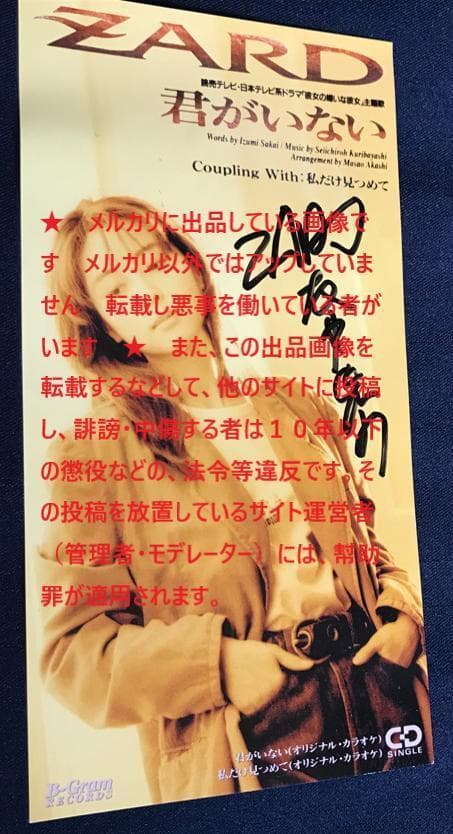 ZARD
読売テレビ・日本テレビ系ドラマ「彼女の嫌いな彼女」主題歌
君がいない
Words by Izumi Sakai / Music by Seiichiroh Kuribayashi
Arrangement by Masao Akashi
Coupling With:私だけ見つめて
★　メルカリに出品している画像で
す　メルカリ以外ではアップしていま
せん　転載し悪事を働いている者が
います　★　また、この出品画像を
転載するなどして、他のサイトに投稿
し、誹謗・中傷する者は１０年以下
の懲役などの、法令等違反です。そ
の投稿を放置しているサイト運営者
（管理者・モデレーター）には、幇助
罪が適用されます。
ZARD
君がいない(オリジナル・カラオケ)
私だけ見つめて(オリジナル・カラオケ)
CD
SINGLE
B-Gram
RECORDS